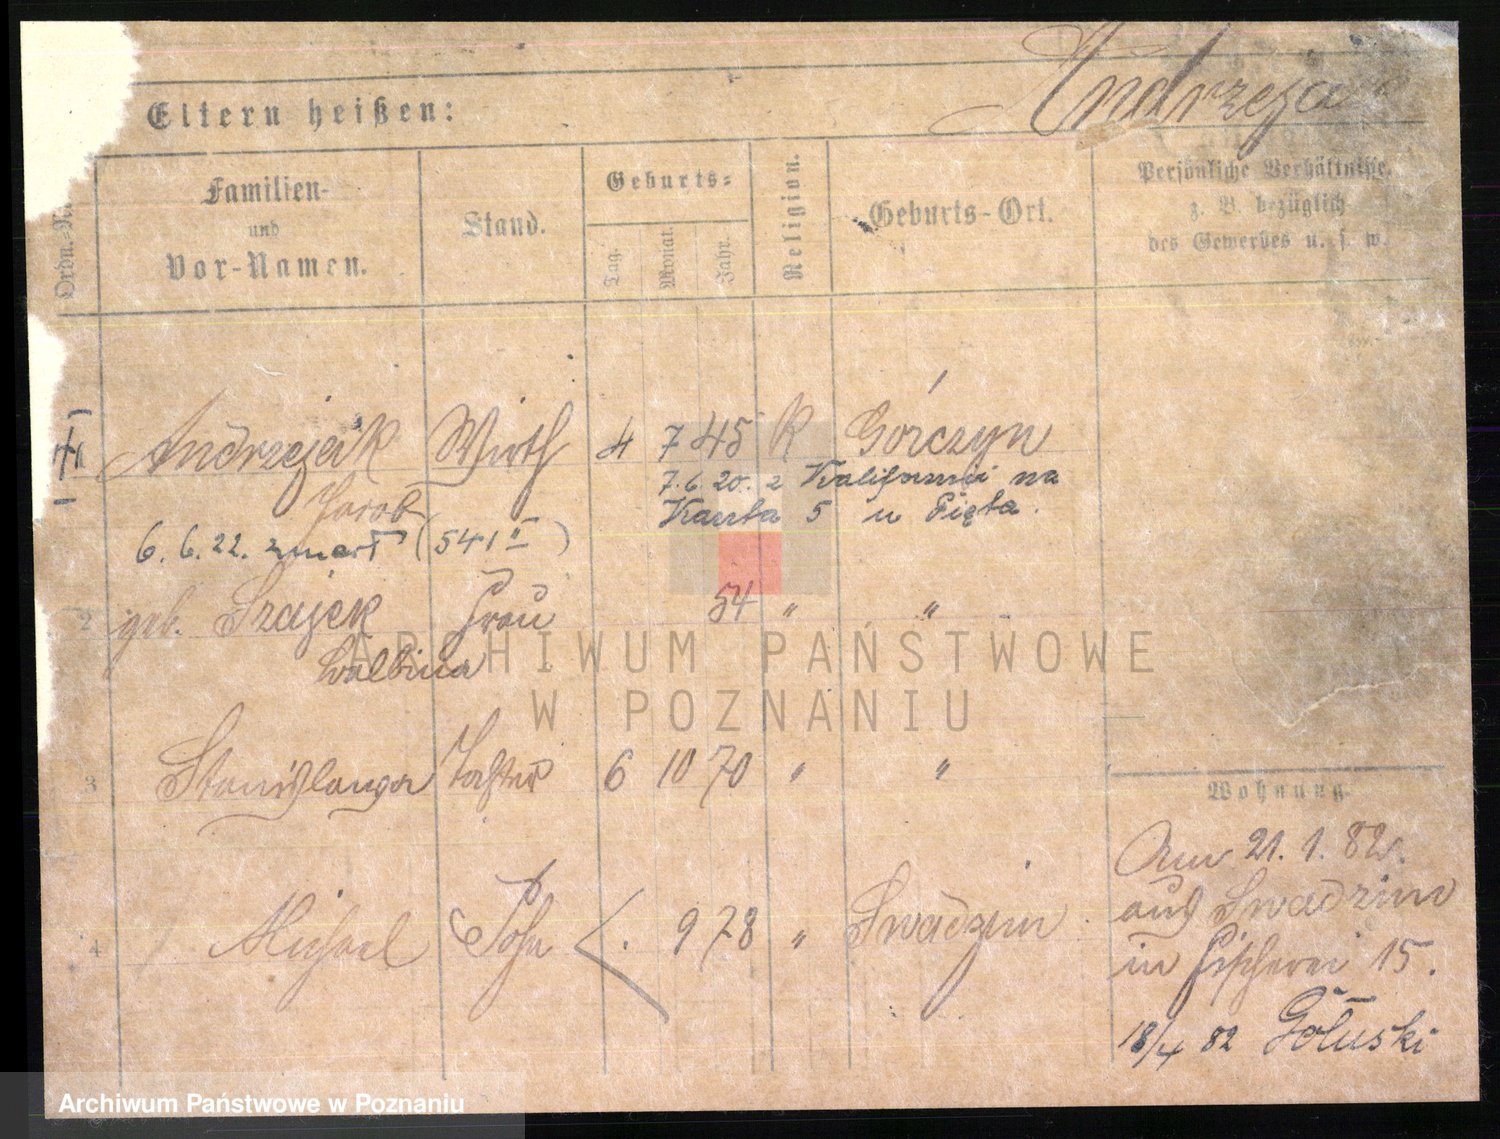 Andrzeja
Eltern heißen:
Ordn.-Nr.
Familien-
und
Vor-Namen.
Stand.
Geburts-
Tag.
Monat.
Jahr.
Religion.
Geburts-Ort.
Persönliche Verhältnisse,
z. B. bezüglich
des Gewerbes u. s. w.
Andrzejak Wirth 4 7 45 K Górczyn
Jacob
7.6.20. z Kalifornii na
6. 6. 22. zmarł (541 II)
2 geb. Szajek Frau 54 " "
Walbina
3 Stanislawa Tochter 6 10 70 " "
4 Michael Sohn . 9 78 " Swadzim
Wohnung.
Am 21. 1. 82.
aus Swadzim
in Fischerei 15.
18/4 82 Goluski
ARCHIWUM PAŃSTWOWE
W POZNANIU
Archiwum Państwowe w Poznaniu